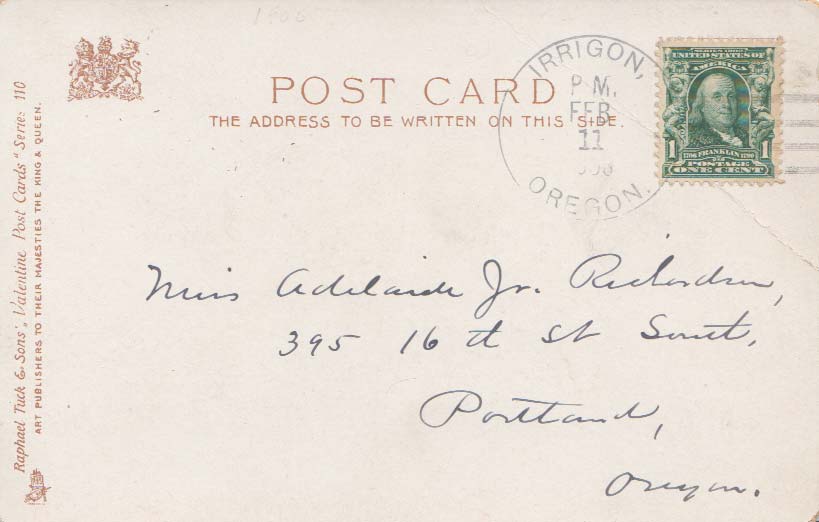 1906
POST CARD
THE ADDRESS TO BE WRITTEN ON THIS SIDE.
IRRIGON,
P M.
FEB
11
OREGON.
SERIES 1902
UNITED STATES OF
AMERICA
1706 FRANKLIN 1790
1 POSTAGE 1
ONE CENT
Raphael Tuck & Sons', "Valentine Post Cards" Series 110
ART PUBLISHERS TO THEIR MAJESTIES THE KING & QUEEN.
Miss Adelaide Jr. Richardson,
395 16 th St South,
Portland,
Oregon.